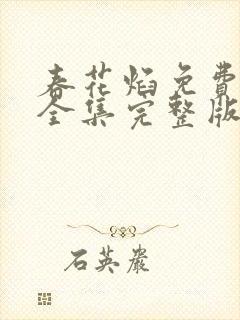 春花焰免費
全集完整版
石英嚴